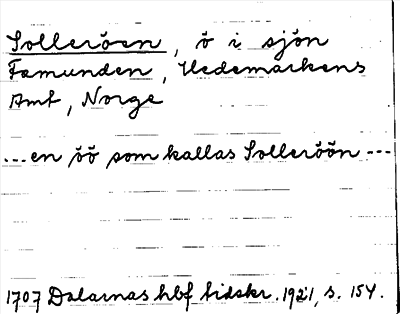 Solleröen, ö i sjön
Famunden, Hedemarkens
Amt, Norge
... en öö som kallas Solleröön ---
1707 Dalarnas hbf tidskr. 1921, s. 154.